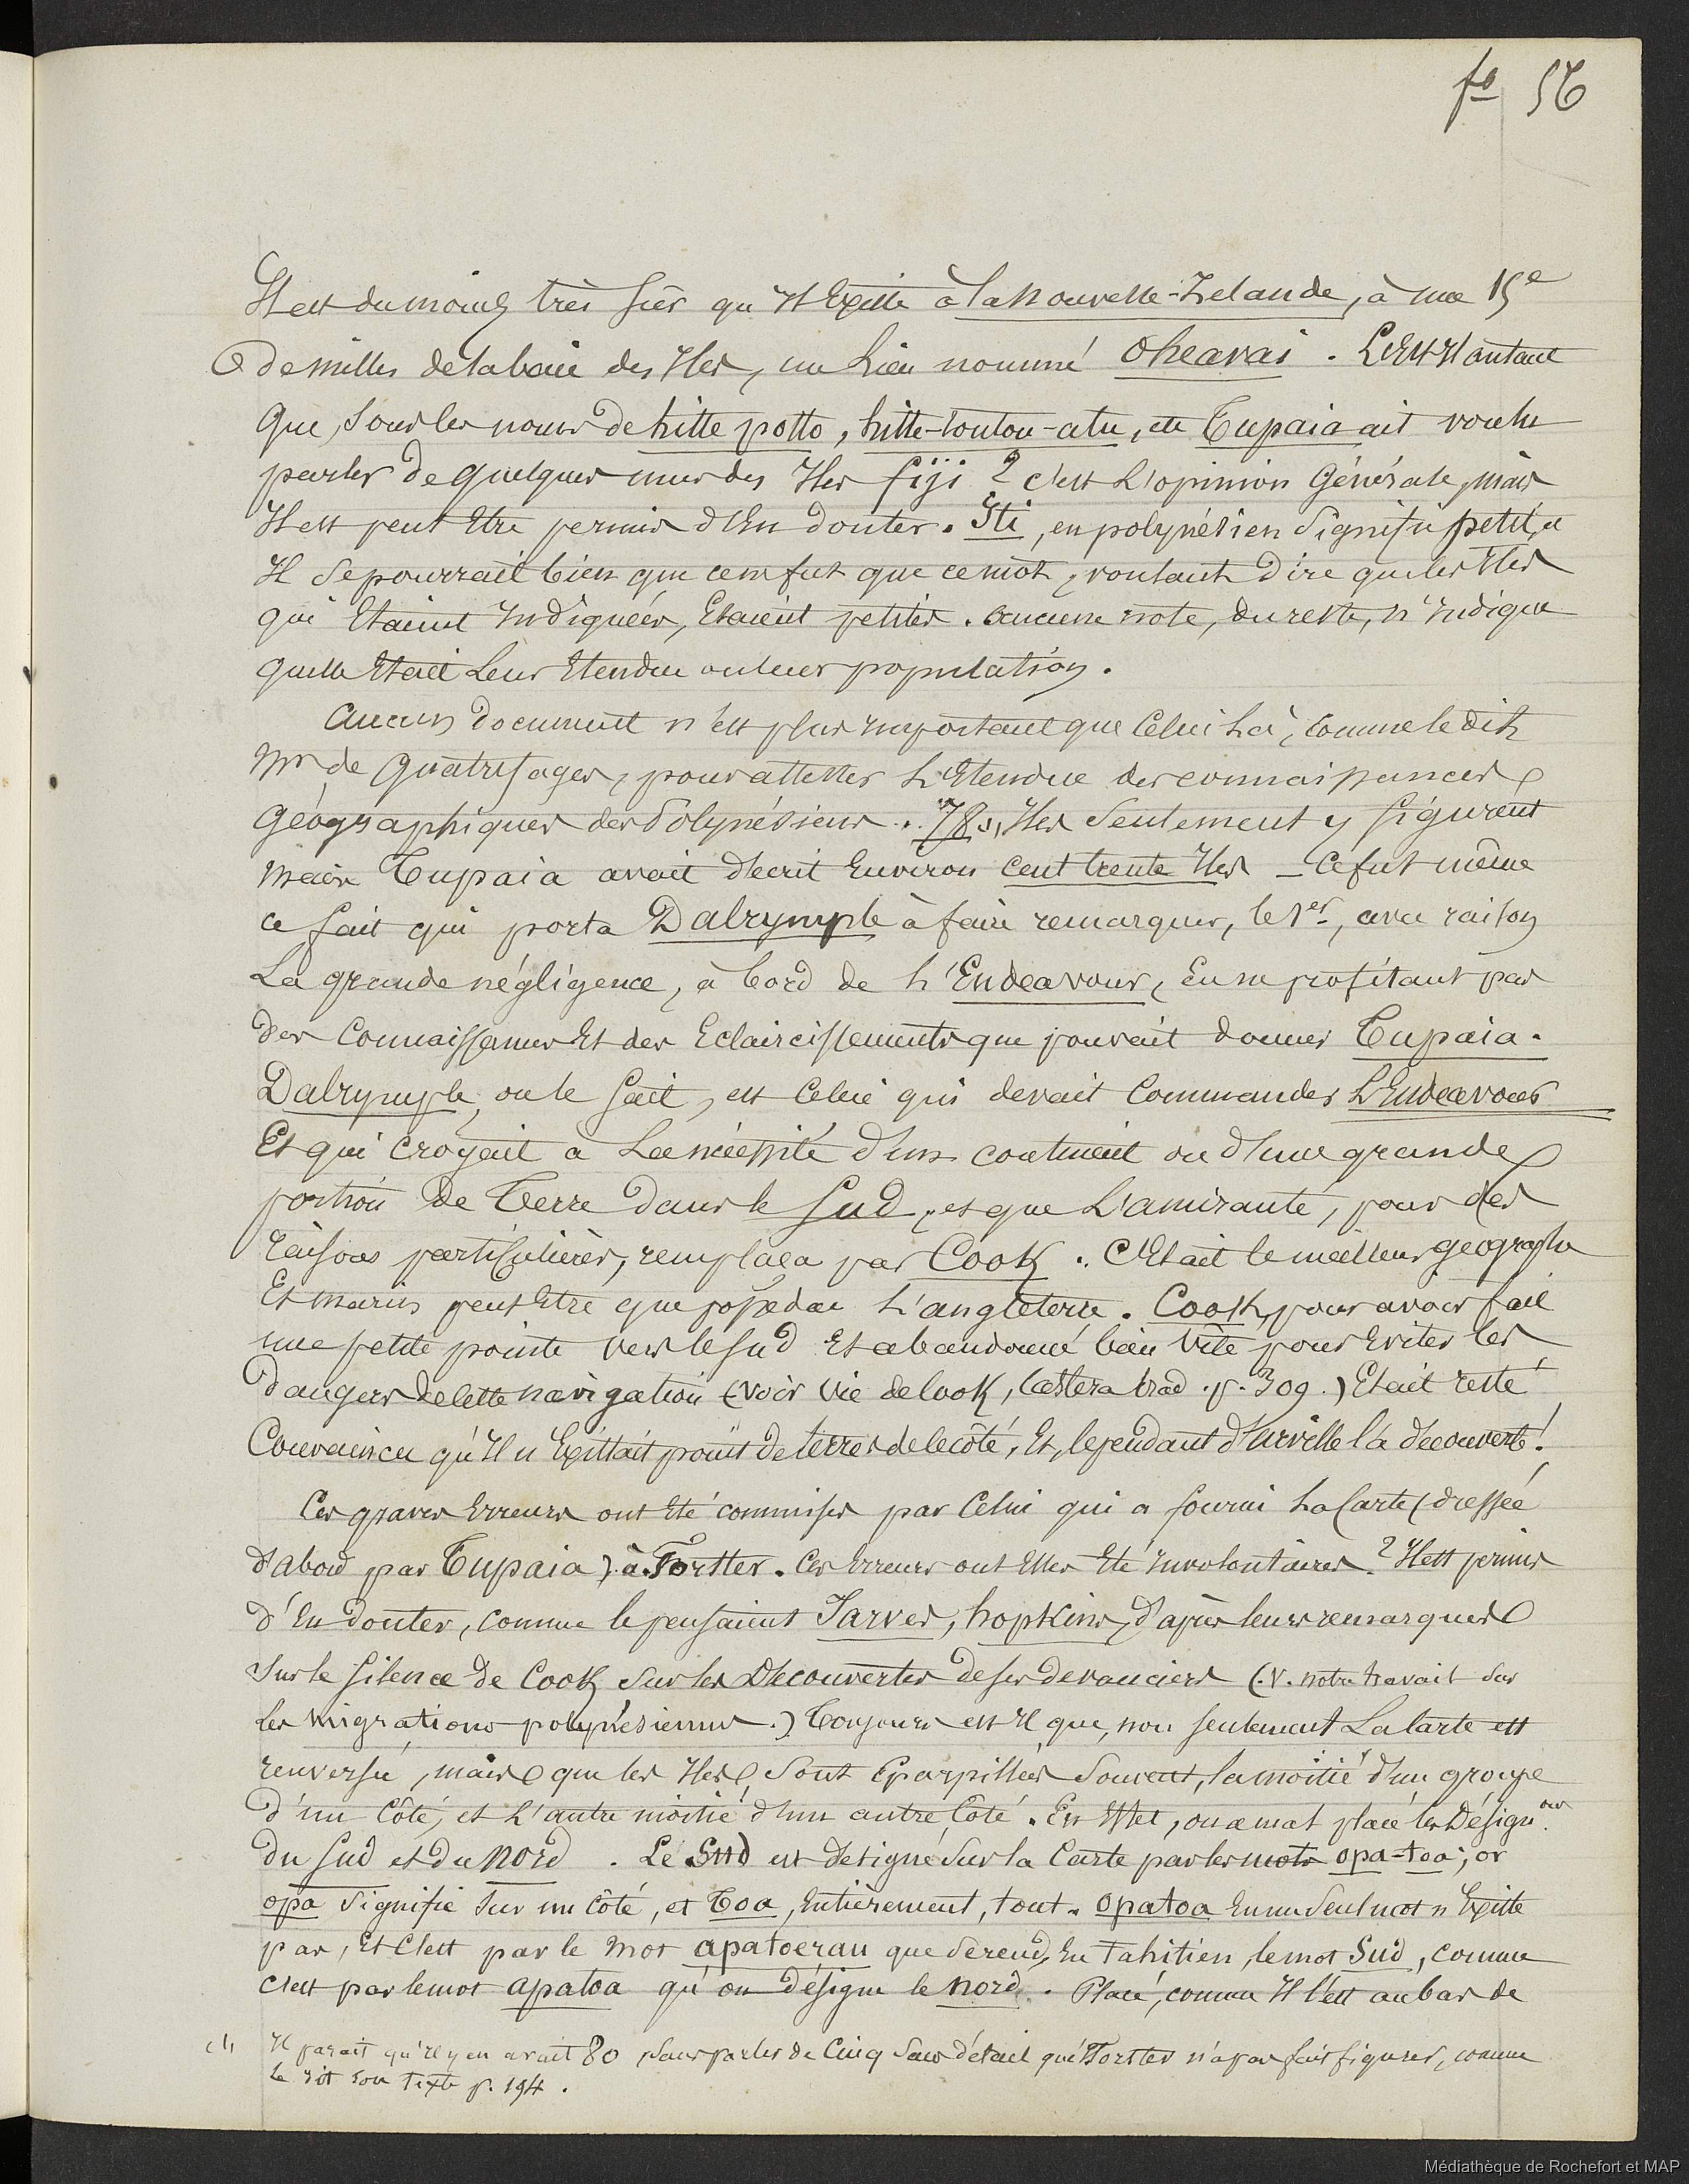 fo 56
Il est du moins très sûr qu'il Existe à la nouvelle-Zelande, à une 15e
de milles de la baie des Iles, un Lieu nommé Oheavai. L'Est Il autant
que, sous les noms de hitte potto, hitte-toutou-atu, etc Tupaia ait voulu
parler de quelques unes des Iles fiji ? c'est L'opinion Générale, mais
Il est peut Etre permis d'En douter. Iti, en polynésien signifie petit, et
Il se pourrait bien que ce ne fut que ce mot, voulant dire que les Iles
qui Etaient Indiquées, Etaient petites. aucune note, du reste, n'Indique
quelle Etait Leur Etendue ou leur population.
Aucun document n'est plus important que Celui Là, comme le dit
Mr de Quatrefages, pour attester L'Etendue des connaissances
Géographiques des Polynésiens. "78 (1) Iles Seulement y figurent
mais Tupaia avait décrit Environ cent trente Iles _ Ce fut même
ce fait qui porta Dalrymple à faire remarquer, le 1er, avec raison
La grande négligence, à bord de L'Endeavour, En ne profitant pas
des Connaissances Et des Eclaircissements que pouvait donner Tupaia.
Dalrymple, on le sait, est Celui qui devait Commander L'Endeavour
Et qui croyait à La nécessité d'un continent ou d'une grande
portion de Terre dans le Sud, et que L'amirauté, pour des
raisons particulières, remplaça par Cook. C'Etait le meilleur géographe
Et marin peut Etre que possédat L'angleterre. Cook, pour avoir fait
une petite pointe vers le sud Et abandonné bien vite pour Eviter les
dangers de cette navigation (voir vie de Cook, Castera trad. p. 309.) Etait resté
Convaincu qu'Il n'Existait point de terres de ce côté, Et, cependant d'urville l'a découverte!
Ces graves Erreurs ont Eté commises par Celui qui a fourni La Carte (dressée
d'abord par Tupaia) à Forster. Ces Erreurs ont Elles Eté Involontaires ? Il est permis
d'En douter, comme le pensaient Jarves, hopkins, d'après leurs remarques
Sur le Silence de Cook sur les Découvertes de ses devanciers (V. notre travail sur
les migrations polynésiennes.) Toujours est Il que, non seulement La Carte est
renversée, mais que les Iles sont Eparpillées souvent, la moitié d'un groupe
d'un Côté, et L'autre moitié d'un autre Côté. En Effet, on a mal placé les Désign.ons
du Sud et du Nord. Le Sud est designé sur la Carte par les mots opa-toa; or
opa signifie sur un côté, et Toa, Entièrement, tout. Opatoa En un seul mot n'Existe
pas, Et C'est par le mot apatoerau que se rend, En Tahitien, le mot Sud, comme
c'est par le mot apatoa qu'on désigne le nord. Placé, comme Il l'est au bas de
(1) Il parait qu'il y en avait 80, sans parler de Cinq Sans détail que Forster n'a pas fait figurer, comme
le dit son texte p. 194.
Médiathèque de Rochefort et MAP